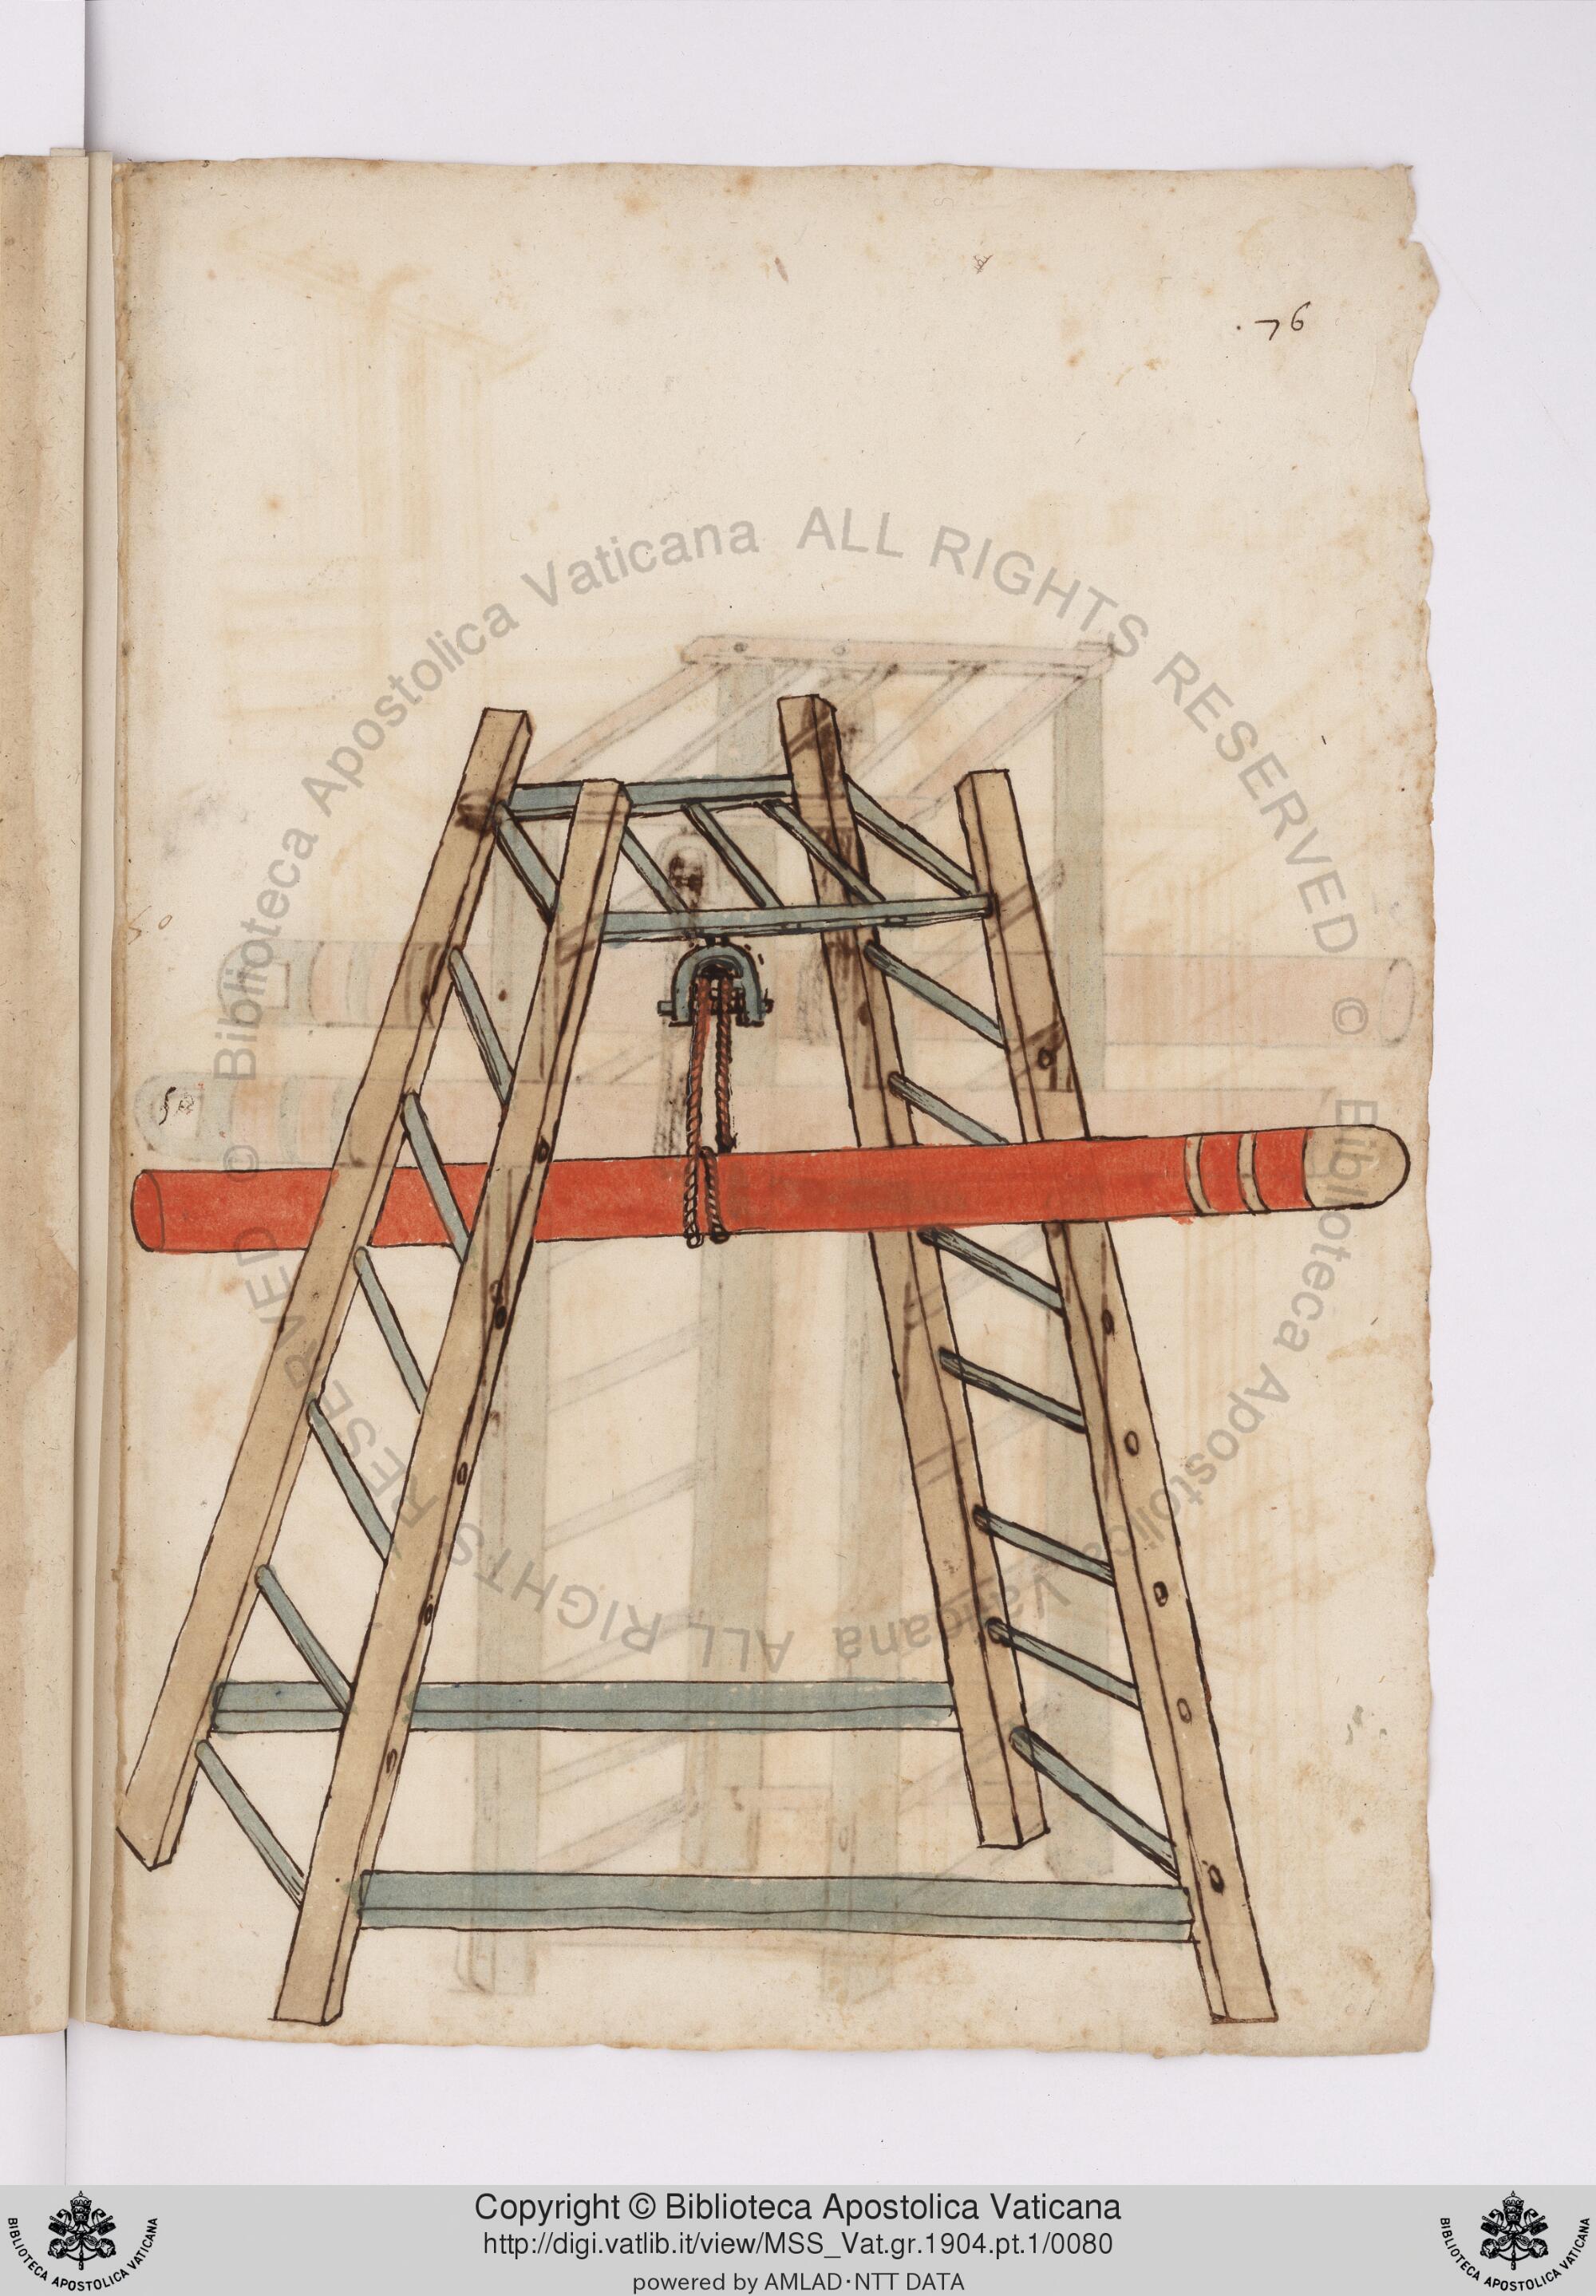 .76
50
© Biblioteca Apostolica Vaticana ALL RIGHTS RESERVED
© Biblioteca Apostolica Vaticana ALL RIGHTS RESERVED
Copyright © Biblioteca Apostolica Vaticana
http://digi.vatlib.it/view/MSS_Vat.gr.1904.pt.1/0080
powered by AMLAD·NTT DATA
BIBLIOTECA APOSTOLICA VATICANA
BIBLIOTECA APOSTOLICA VATICANA